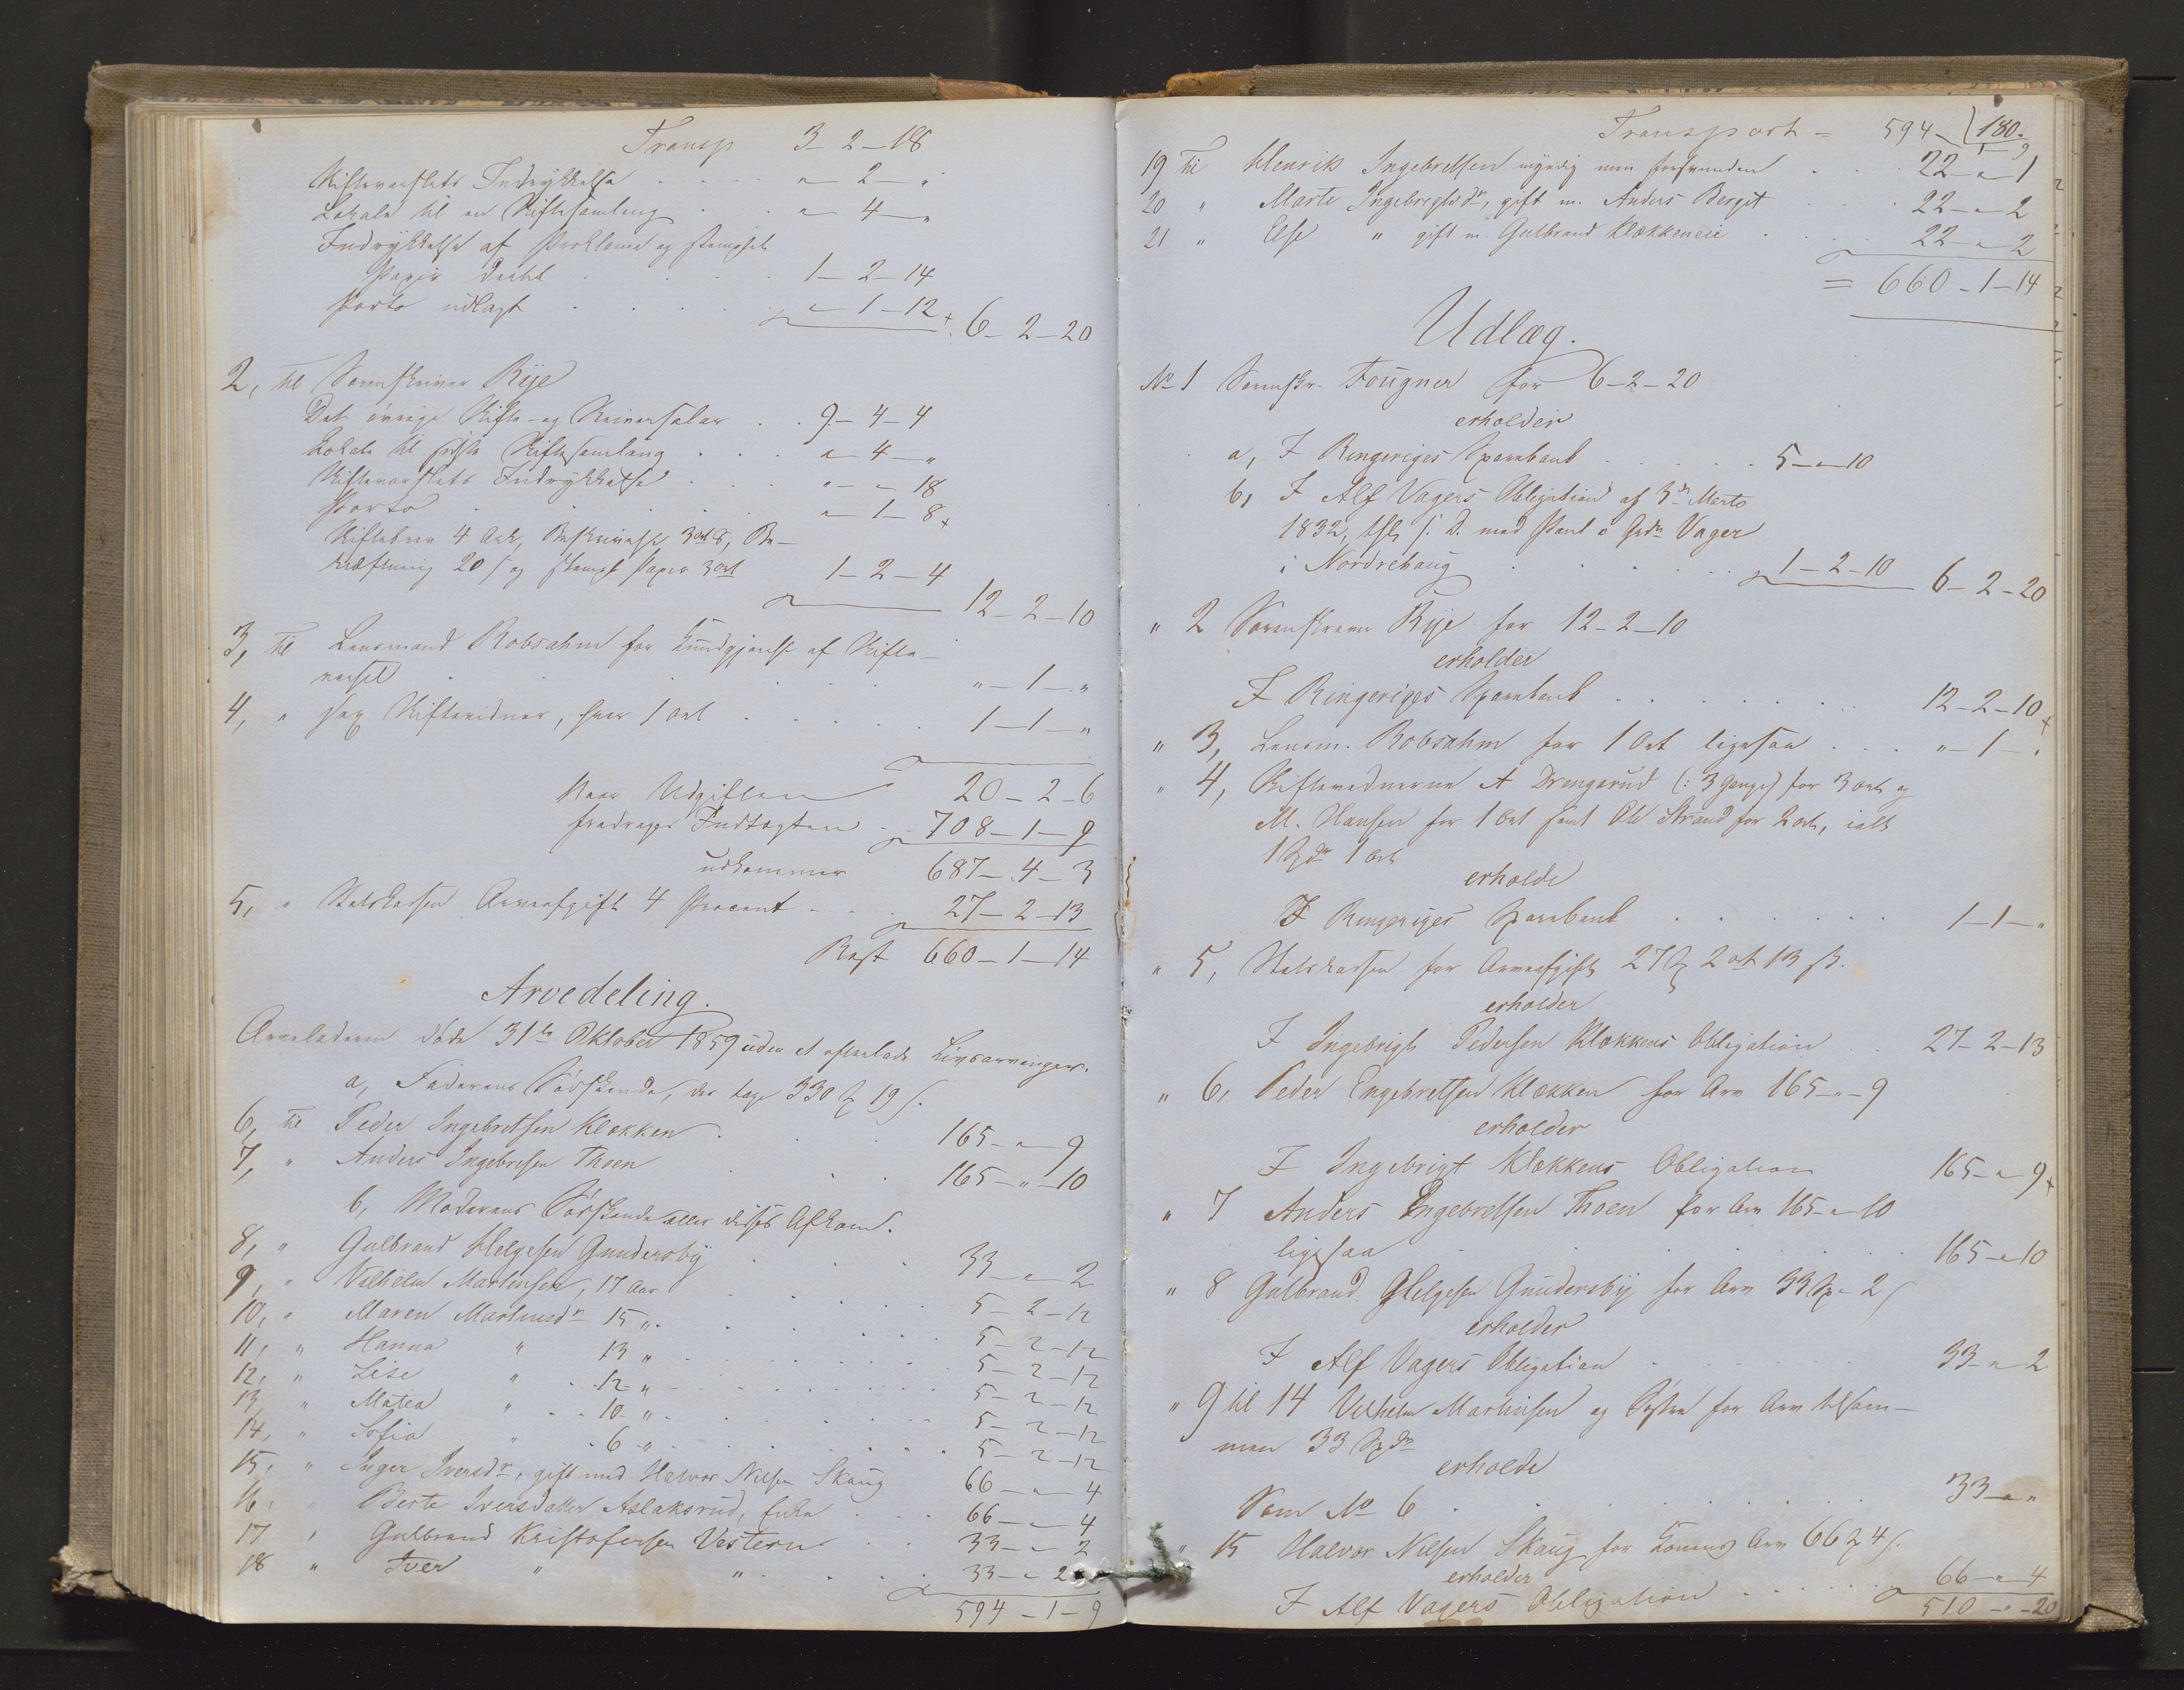 Transp 3-2-18
Skiftevarslets Indrykkelse . . . . " - 2 - "
Lokale til en Skiftesamling . . " - 4 - "
Indrykkelse af Proklama og stemplet
Papir dertil . . . . 1-2-14
Porto udlagt . . . . " - 1 - 12 6-2-20
2, til Sorenskriver Rye
Det øvrige Skifte- og Skriversalær . . 9-4-4
Lokale til sidste Skiftesamling . . . " - 4 - "
Skiftevarslets Indrykkelse . . . " - " - 18
Porto . . . . " - 1 - 8
Skiftebrev 4 Ark, Beskrivelse 3 ort 8, Be-
kræftning 20 s og stempl. Papir 3 ort 1-2-4
12-2-10
3, til Lensmand Robsahm for Kundgjørelse af Skifte-
varsel . . . . " - 1 - "
4, " sex Skiftevidner, hver 1 Ort . . . . 1-1-"
Naar Udgiften 20-2-6
fradrages Indtægten . . 708-1-9
udkommer 687-4-3
5, " Statskassen Arveafgift 4 Procent . . . 27-2-13
Rest 660-1-14
Arvedeling.
Arveladeren døde 31te Oktober 1859 uden at efterlade Livsarvinger.
a, Faderens Sødskende, der tage 330 Sp 19 s.
6, til Peder Ingebretsen Klækken . . . 165-"-9
7, " Anders Ingebretsen Thoen . . . 165-"-10
b, Moderens Sødskende eller disses Afkom.
8, " Gulbrand Helgesen Gundersby . . . 33-"-2
9, " Vilhelm Martinsen, 17 Aar . . . 5-2-12
10, " Maren Martinsdr 15 " . . . 5-2-12
11, " Hanna " 13 " . . . 5-2-12
12, " Lise " 12 " . . . 5-2-12
13, " Matea " 10 " . . . 5-2-12
14, " Sofia " 6 " . . . 5-2-12
15, " Inger Iversdr, gift med Halvor Nilsen Skaug 66-"-4
16, " Berte Iversdatter Aslaksrud, Enke . . . 66-"-4
17 " Gulbrand Kristofersen Vestern . . 33-"-2
18 " Iver " " . . . 33-"-2
594-1-9
180.
Transport = 594-1-9
19 til Henrik Ingebretsen myndig men forsvunden . . . 22-"-1
20 " Marte Ingebrigtsdr, gift m. Anders Bergst . . . 22-"-2
21 " Else " gift m. Gulbrand Klækkeneie . . . 22-"-2
= 660-1-14
Udlæg.
No 1 Sorenskr. Fougner for 6-2-20
erholder
a, I Ringeriges Sparebank . . . . 5-"-10
b, I Alf Vagers Obligation af 3de Marts
1832, tgl. s. D. med Pant i Grdn Vager
i Nordrehaug . . . . 1-2-10 6-2-20
" 2 Sorenskriver Rye for 12-2-10
erholder
I Ringeriges Sparebank . . . . 12-2-10
" 3, Lensm. Robsahm for 1 Ort ligesaa . . . " - 1 - "
" 4, Skiftevidnerne A Drengsrud (: 3 Gange) for 3 ort og
M. Hansen for 1 Ort samt Ole Strand for 2 ort, ialt
1 Spdr 1 Ort
erholde
I Ringeriges Sparebank . . . . 1-1-"
" 5, Statskassen for Arveafgift 27 Sp 2 ort 13 s.
erholder
I Ingebrigt Pedersen Klækkens Obligation . . 27-2-13
" 6, Peder Engebretsen Klækken for Arv 165-"-9
erholder
I Ingebrigt Klækkens Obligation 165-"-9
" 7 Anders Ingebretsen Thoen for Arv 165-"-10
ligesaa . . . . 165-"-10
" 8 Gulbrand Helgesen Gundersby for Arv 33 Sp " 2 s
erholder
I Alf Vagers Obligation . . . . 33-"-2
" 9 til 14 Vilhelm Martinsen og Søstre for Arv tilsam-
men 33 Spdr
erholde
Som No 6 . . . . 33-"-"
" 15 Halvor Nilsen Skaug for Konens Arv 66 Sp 4 s.
erholder
I Alf Vagers Obligation . . . . 66-"-4
510-"-20